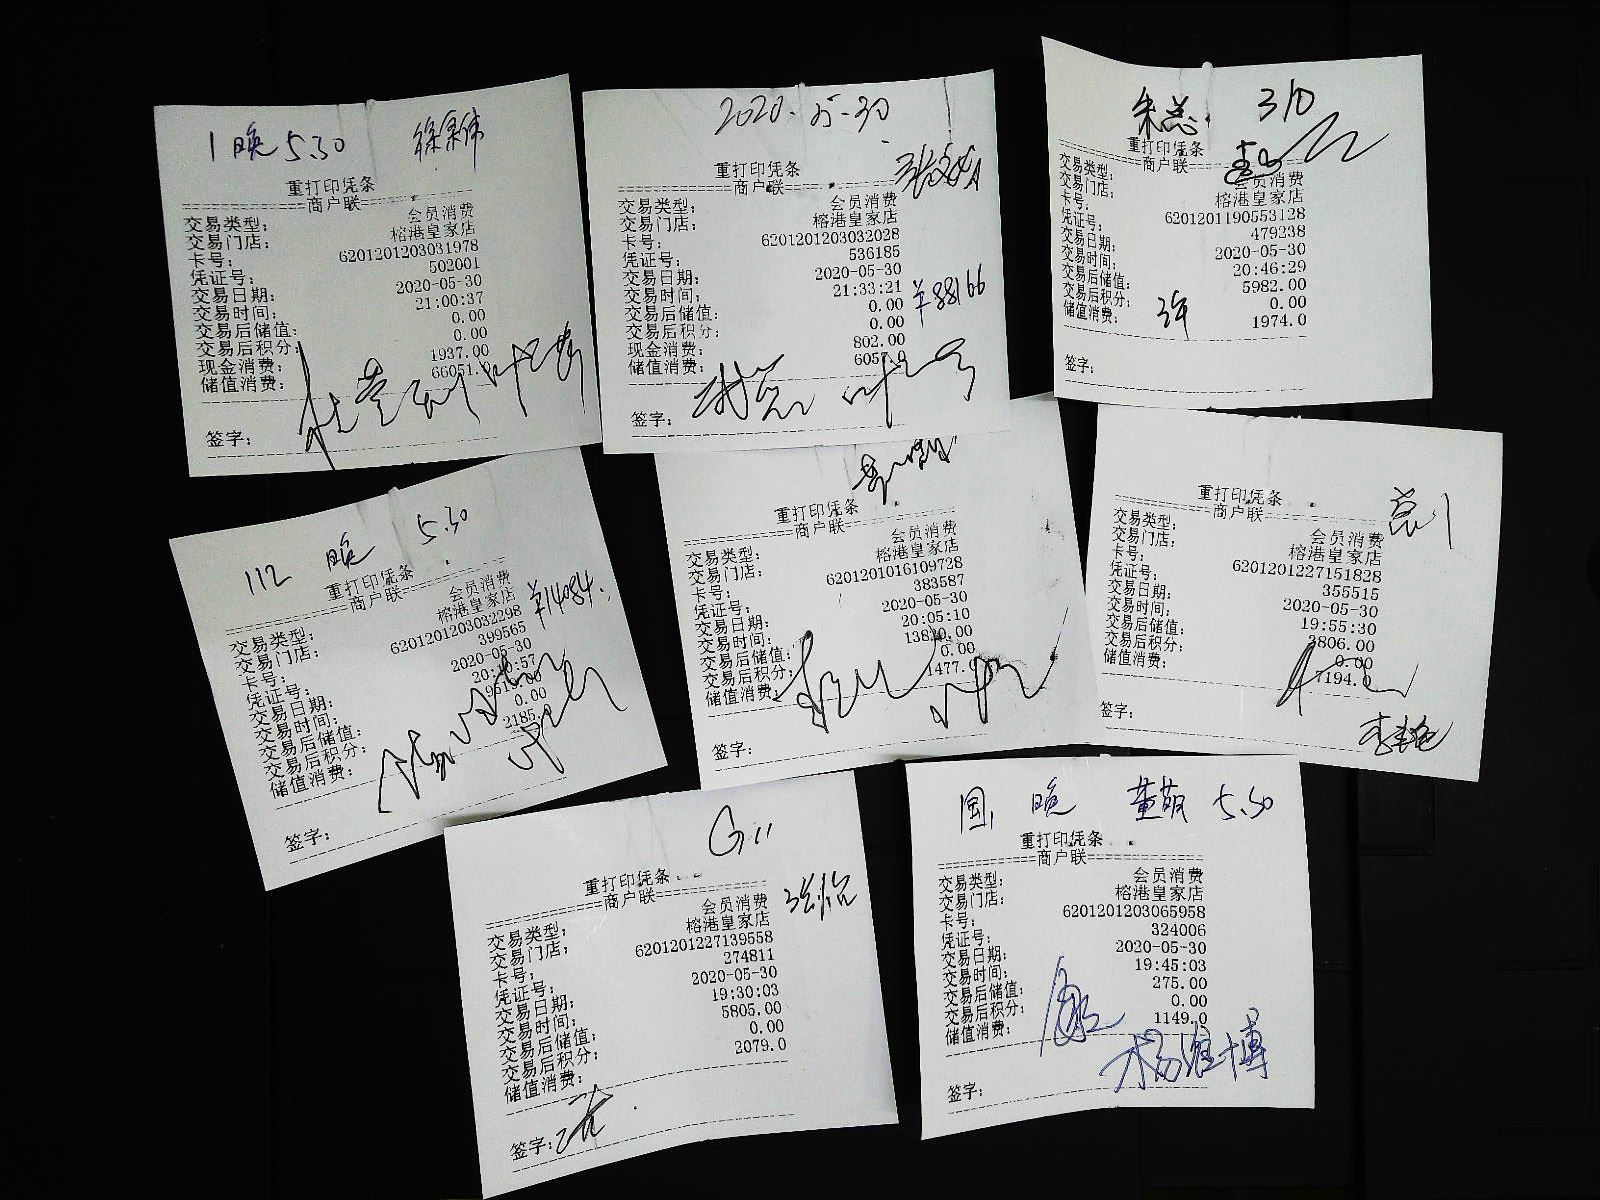 1 晚 5.30
重打印凭条
商户联
交易类型: 会员消费
交易门店: 榕港皇家店
卡号: 6201201203031978
凭证号: 502001
交易日期: 2020-05-30
交易时间: 21:00:37
交易后储值: 0.00
交易后积分: 0.00
现金消费: 1937.00
储值消费: 66051.0
签字:
2020.5.30
重打印凭条
商户联
交易类型: 会员消费
交易门店: 榕港皇家店
卡号: 6201201203032028
凭证号: 536185
交易日期: 2020-05-30
交易时间: 21:33:21
交易后储值: 0.00
交易后积分: 0.00
现金消费: 802.00
储值消费: 6057.0
¥88166
签字:
朱总. 310
重打印凭条
商户联
交易类型: 会员消费
交易门店: 榕港皇家店
卡号: 6201201190553128
凭证号: 479238
交易日期: 2020-05-30
交易时间: 20:46:29
交易后储值: 5982.00
交易后积分: 0.00
储值消费: 1974.0
签字:
112 晚 5.30
重打印凭条
商户联
交易类型: 会员消费
交易门店: 榕港皇家店
卡号: 6201201203032298
凭证号: 399565
交易日期: 2020-05-30
交易时间: 20:10:57
交易后储值:
交易后积分: 0.00
储值消费: 2185.0
¥14084.
签字:
重打印凭条
商户联
交易类型: 会员消费
交易门店: 榕港皇家店
卡号: 6201201016109728
凭证号: 383587
交易日期: 2020-05-30
交易时间: 20:05:10
交易后储值:
交易后积分: 0.00
储值消费: 1477.0
签字:
重打印凭条
商户联
总1
交易类型: 会员消费
交易门店: 榕港皇家店
卡号: 6201201227151828
凭证号: 355515
交易日期: 2020-05-30
交易时间: 19:55:30
交易后储值: 3806.00
交易后积分: 0.00
储值消费: 7194.0
签字:
G11
重打印凭条
商户联
交易类型: 会员消费
交易门店: 榕港皇家店
卡号: 6201201227139558
凭证号: 274811
交易日期: 2020-05-30
交易时间: 19:30:03
交易后储值: 5805.00
交易后积分: 0.00
储值消费: 2079.0
张怡
签字:
国1 晚 董萌 5.30
重打印凭条
商户联
交易类型: 会员消费
交易门店: 榕港皇家店
卡号: 6201201203065958
凭证号: 324006
交易日期: 2020-05-30
交易时间: 19:45:03
交易后储值: 275.00
交易后积分: 0.00
储值消费: 1149.0
杨淮博
签字: